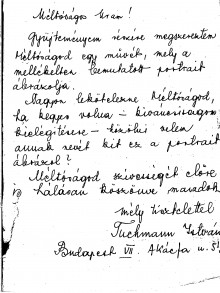 Méltóságos Uram!
Gyűjteményem részére megszereztem
Méltóságod egy művét, mely a
mellékelten bemutatott portrait
ábrázolja.
Nagyon lekötelezne Méltóságod,
ha kegyes volna – kiváncsiságom
kielégitésére – közölni velem
annak nevét kit ez a portrait
ábrázol?
Méltóságod szivességét előre
is hálásan köszönve maradok
mély tisztelettel
Tuchmann István
Budapest VII. Akácfa u.